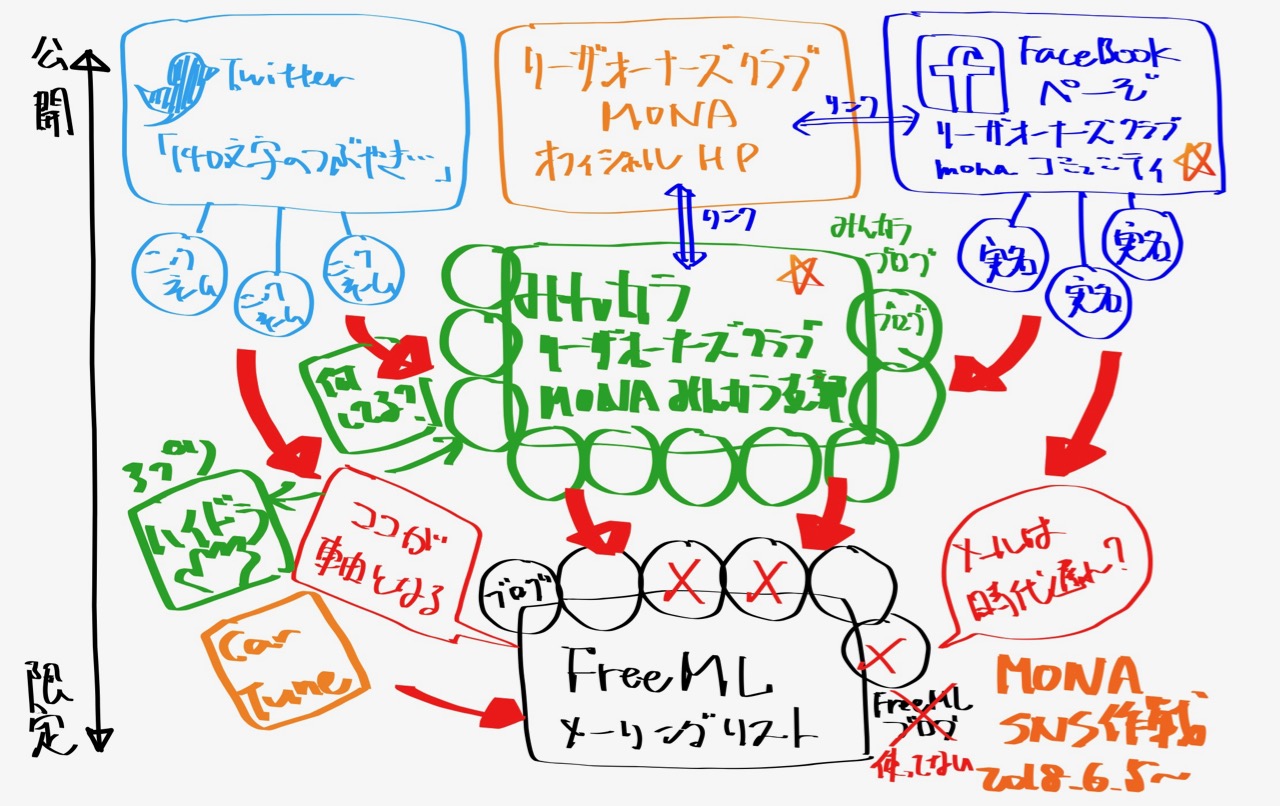 公開
Twitter
「140文字のつぶやき…」
ニックネーム
ニックネーム
ニックネーム
リーザオーナーズクラブ
MONA
オフィシャルHP
リンク
f
FaceBook
ページ
リーザオーナーズクラブ
mona コミュニティ
実名
実名
実名
リンク
みんカラ
ブログ
ブログ
みんカラ
リーザオーナーズクラブ
MONAみんカラ支部
何
してる?
アプリ
ハイドラ
ココが
軸となる
Car
Tune
ブログ
X
X
X
FreeML
メーリングリスト
メールは
時代遅れ?
FreeML
ブログ
使ってない
限定
MONA
SNS作戦
2018.6.5~